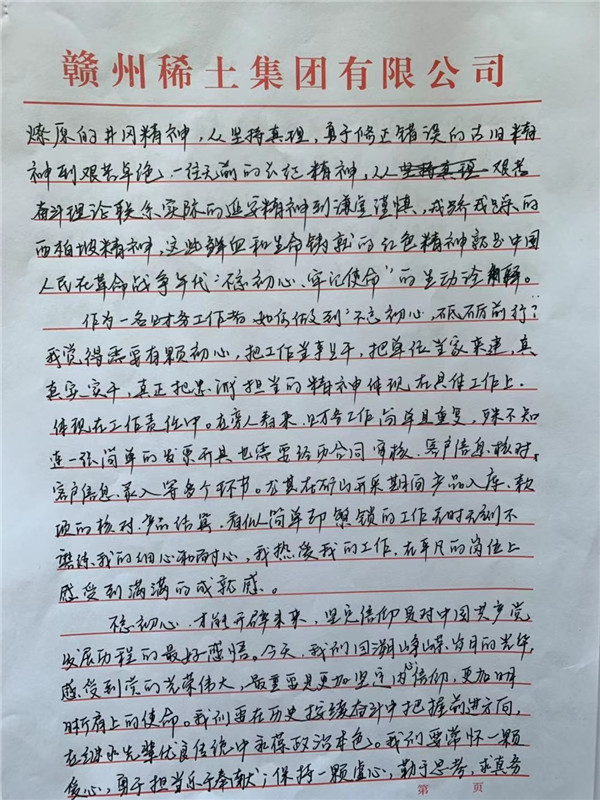 赣州稀土集团有限公司
燎原的井冈精神，从坚持真理，勇于修正错误的古田精
神到艰苦卓绝、一往无前的长征精神，从艰苦
奋斗理论联系实际的延安精神到谦虚谨慎，戒骄戒躁的
西柏坡精神，这些鲜血和生命铸就的红色精神就是中国
人民在革命战争年代“不忘初心、牢记使命”的生动诠解。
作为一名财务工作者如何做到“不忘初心，砥砺前行？
我觉得需要有颗初心，把工作当事业干，把单位当家来建，真
真实实干，真正把忠诚担当的精神体现在具体工作上，
体现在工作责任中。在旁人看来，财务工作简单且重复，殊不知
连一张简单的发票开具也需要经历合同审核、客户信息核对、
客户信息录入等多个环节。尤其在矿山开采期间产品入库、款
项的核对、产品结算，看似简单却繁锁的工作无时无刻不
磨练我的细心和耐心，我热爱我的工作，在平凡的岗位上
感受到满满的成就感。
不忘初心，才能开辟未来，坚定信仰是对中国共产党
发展历程的最好感悟。今天，我们回溯峥嵘岁月的光华，
感受到党的光荣伟大，最重要是更加坚定内心信仰，更加明
晰肩上的使命。我们要在历史接续奋斗中把握前进方向，
在继承先辈优良传统中永葆政治本色。我们要常怀一颗
爱心，勇于担当乐于奉献；保持一颗虚心，勤于思考，求真务
第 页